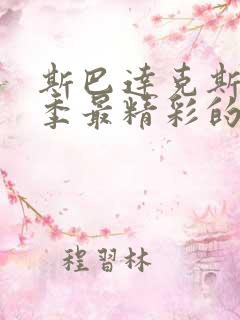 斯巴达克斯
季最精彩的
程習林